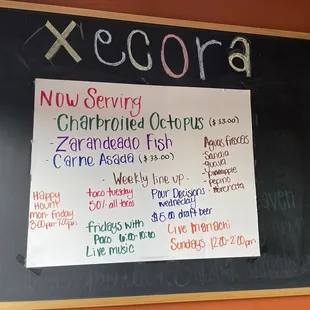 xecora
Now Serving
- Charbroiled Octopus ($33.00)
- Zarandeado Fish
- Carne Asada ($33.00)
Aguas Frescas
- Sandia
- guava
- pineapple
- pepino
- Weekly line up -
Happy
Hour!!
mon - Friday
3:00pm-7:00pm
taco tuesday
50% all tacos
Pour Decisions
wednesday
$6.00 draft beer
Fridays with
Paco 6:00-10:00
Live music
Live Mariachi
Sundays 12:00-2:00pm